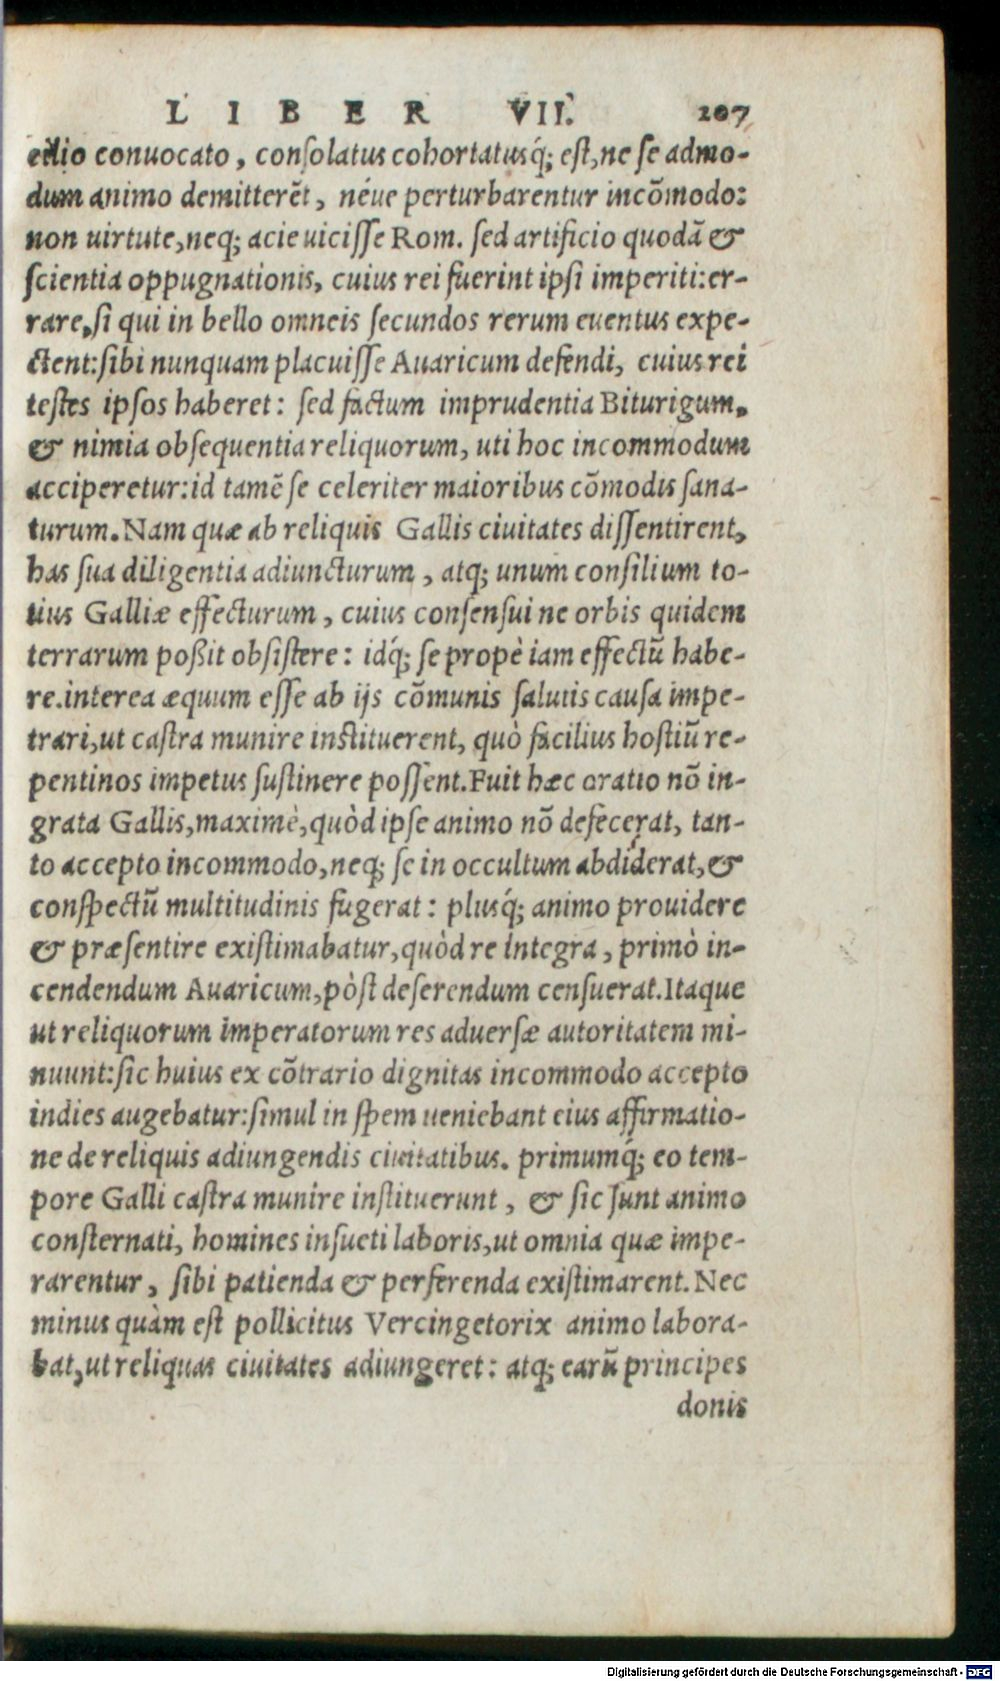 LIBER VII. 207
cilio conuocato, consolatus cohortatusq́; est, ne se admo-
dum animo demitterẽt, néue perturbarentur incõmodo:
non uirtute, neq; acie uicisse Rom. sed artificio quodã &
scientia oppugnationis, cuius rei fuerint ipsi imperiti: er-
rare, si qui in bello omneis secundos rerum euentus expe-
ctent: sibi nunquam placuisse Auaricum defendi, cuius rei
testes ipsos haberet: sed factum imprudentia Biturigum,
& nimia obsequentia reliquorum, uti hoc incommodum
acciperetur: id tamẽ se celeriter maioribus cõmodis sana-
turum. Nam quæ ab reliquis Gallis ciuitates dissentirent,
has sua diligentia adiuncturum, atq; unum consilium to-
tius Galliæ effecturum, cuius consensui ne orbis quidem
terrarum poßit obsistere: idq́; se propè iam effectũ habe-
re. interea æquum esse ab ijs cõmunis salutis causa impe-
trari, ut castra munire instituerent, quò facilius hostiũ re-
pentinos impetus sustinere possent. Fuit hæc oratio nõ in-
grata Gallis, maximè, quòd ipse animo nõ defecerat, tan-
to accepto incommodo, neq; se in occultum abdiderat, &
conspectũ multitudinis fugerat: plusq́; animo prouidere
& præsentire existimabatur, quòd re integra, primò in-
cendendum Auaricum, pòst deserendum censuerat. Itaque
ut reliquorum imperatorum res aduersæ autoritatem mi-
nuunt: sic huius ex cõtrario dignitas incommodo accepto
indies augebatur: simul in spem ueniebant eius affirmatio-
ne de reliquis adiungendis ciuitatibus. primumq́; eo tem-
pore Galli castra munire instituerunt, & sic sunt animo
consternati, homines insueti laboris, ut omnia quæ impe-
rarentur, sibi patienda & perferenda existimarent. Nec
minus quàm est pollicitus Vercingetorix animo labora-
bat, ut reliquas ciuitates adiungeret: atq; earũ principes
donis
Digitalisierung gefördert durch die Deutsche Forschungsgemeinschaft - DFG